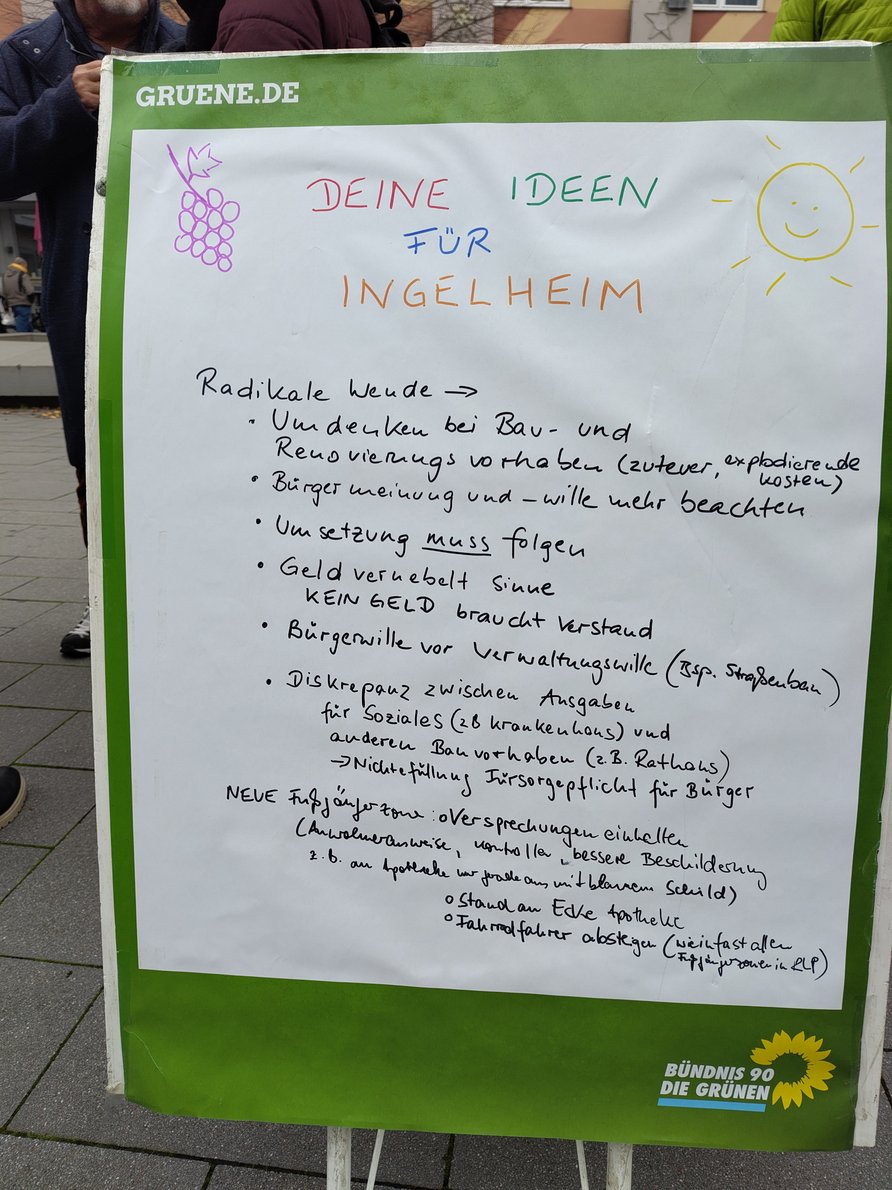 GRUENE.DE
DEINE IDEEN
FÜR
INGELHEIM
Radikale Wende →
• Umdenken bei Bau- und
Renovierungsvorhaben (zu teuer, explodierende
kosten)
• Bürgermeinung und -wille mehr beachten
• Umsetzung muss folgen
• Geld vernebelt Sinne
KEIN GELD braucht Verstand
• Bürgerwille vor Verwaltungswille (Bsp. Straßenbau)
• Diskrepanz zwischen Ausgaben
für Soziales (zB Krankenhaus) und
anderen Bauvorhaben (z.B. Rathaus)
→ Nichtefüllung Fürsorgepflicht für Bürger
NEUE Fußgängerzone: o Versprechungen einhalten
(Anwohnerausweise, Kontrollen, bessere Beschilderung
z.B. an Apotheke nur geradeaus mit blauem Schild)
o Stand an Ecke Apotheke
o Fahrradfahrer absteigen (wie in fast allen
Fußgängerzonen in RLP)
BÜNDNIS 90
DIE GRÜNEN